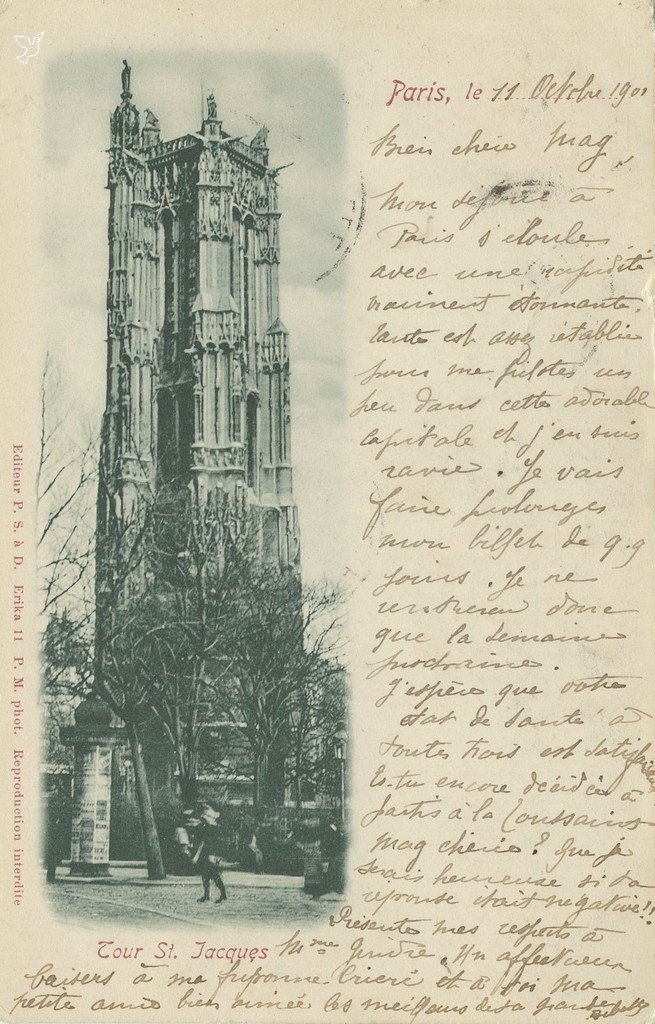 Paris, le 11 Octobre 190
Bien chère Mag,
Mon séjour à
Paris s'écoule
avec une rapidité
vraiment étonnante.
Tante est assez rétablie
pour me piloter un
peu dans cette adorable
capitale et j'en suis
ravie. Je vais
faire prolonger
mon billet de q.q
jours. Je ne
rentrerai donc
que la semaine
prochaine.
J'espère que votre
état de santé à
toutes trois est satisfaisant
Es-tu encore décidée à
partir à la Toussaint
Mag chérie? Que je
serais heureuse si ta
réponse était négative!!
Présente mes respects à
Mme Gindre. Un affectueux
baisers à ma friponne et à toi ma
petite amie bien aimée les meilleurs de ta grande
Tour St. Jacques
Editeur P. S. à D. Erika 11 P. M. phot. Reproduction interdite